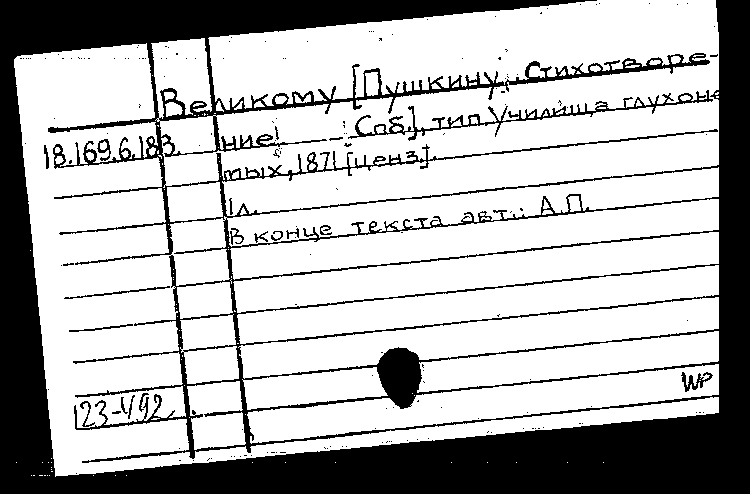 Великому [Пушкину. Стихотворе-
18.169.6.183. ние] Спб.], тип. Училища глухоне
мых, 1871 [ценз.].
1л.
В конце текста авт.: А.П.
123-492
WP